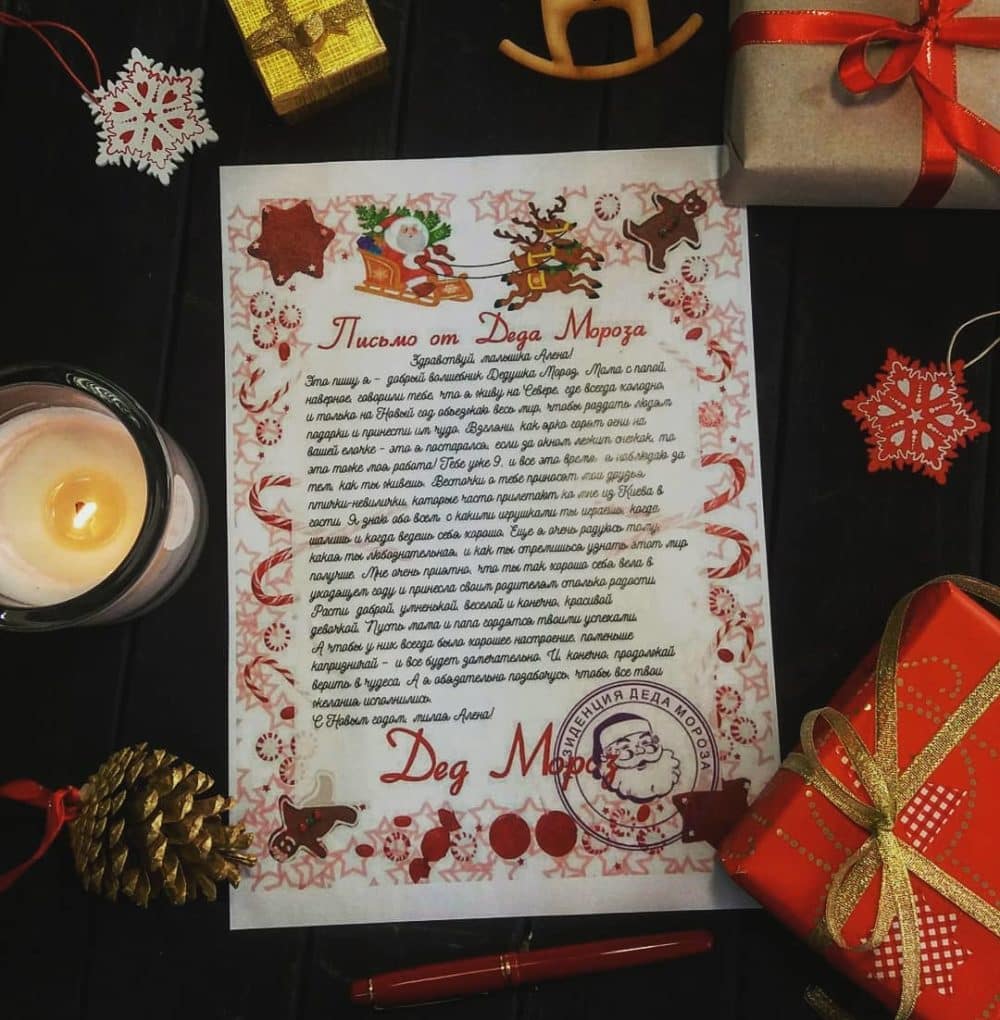 Письмо от Деда Мороза
Здравствуй, малышка Алена!
Это пишу я - добрый волшебник Дедушка Мороз. Мама с папой,
наверное, говорили тебе, что я живу на Севере, где всегда холодно,
и только на Новый год объезжаю весь мир, чтобы раздать людям
подарки и принести им чудо. Взгляни, как ярко горят огни на
вашей елочке - это я постарался, если за окном лежит снежок, то
это тоже моя работа! Тебе уже 9, и все это время, я наблюдаю за
тем, как ты живешь. Весточки о тебе приносят мои друзья
птички-невелички, которые часто прилетают ко мне из Киева в
гости. Я знаю обо всем: с какими игрушками ты играешь, когда
шалишь и когда ведешь себя хорошо. Еще я очень радуюсь тому,
какая ты любознательная, и как ты стремишься узнать этот мир
получше. Мне очень приятно, что ты так хорошо себя вела в
уходящем году и принесла своим родителям столько радости.
Расти доброй, умненькой, веселой и конечно, красивой
девочкой. Пусть мама и папа гордятся твоими успехами.
А чтобы у них всегда было хорошее настроение, поменьше
капризничай - и все будет замечательно. И, конечно, продолжай
верить в чудеса. А я обязательно позабочусь, чтобы все твои
желания исполнились.
С Новым годом, милая Алена!
Дед Мороз
ЗИДЕНЦИЯ ДЕДА МОРОЗА